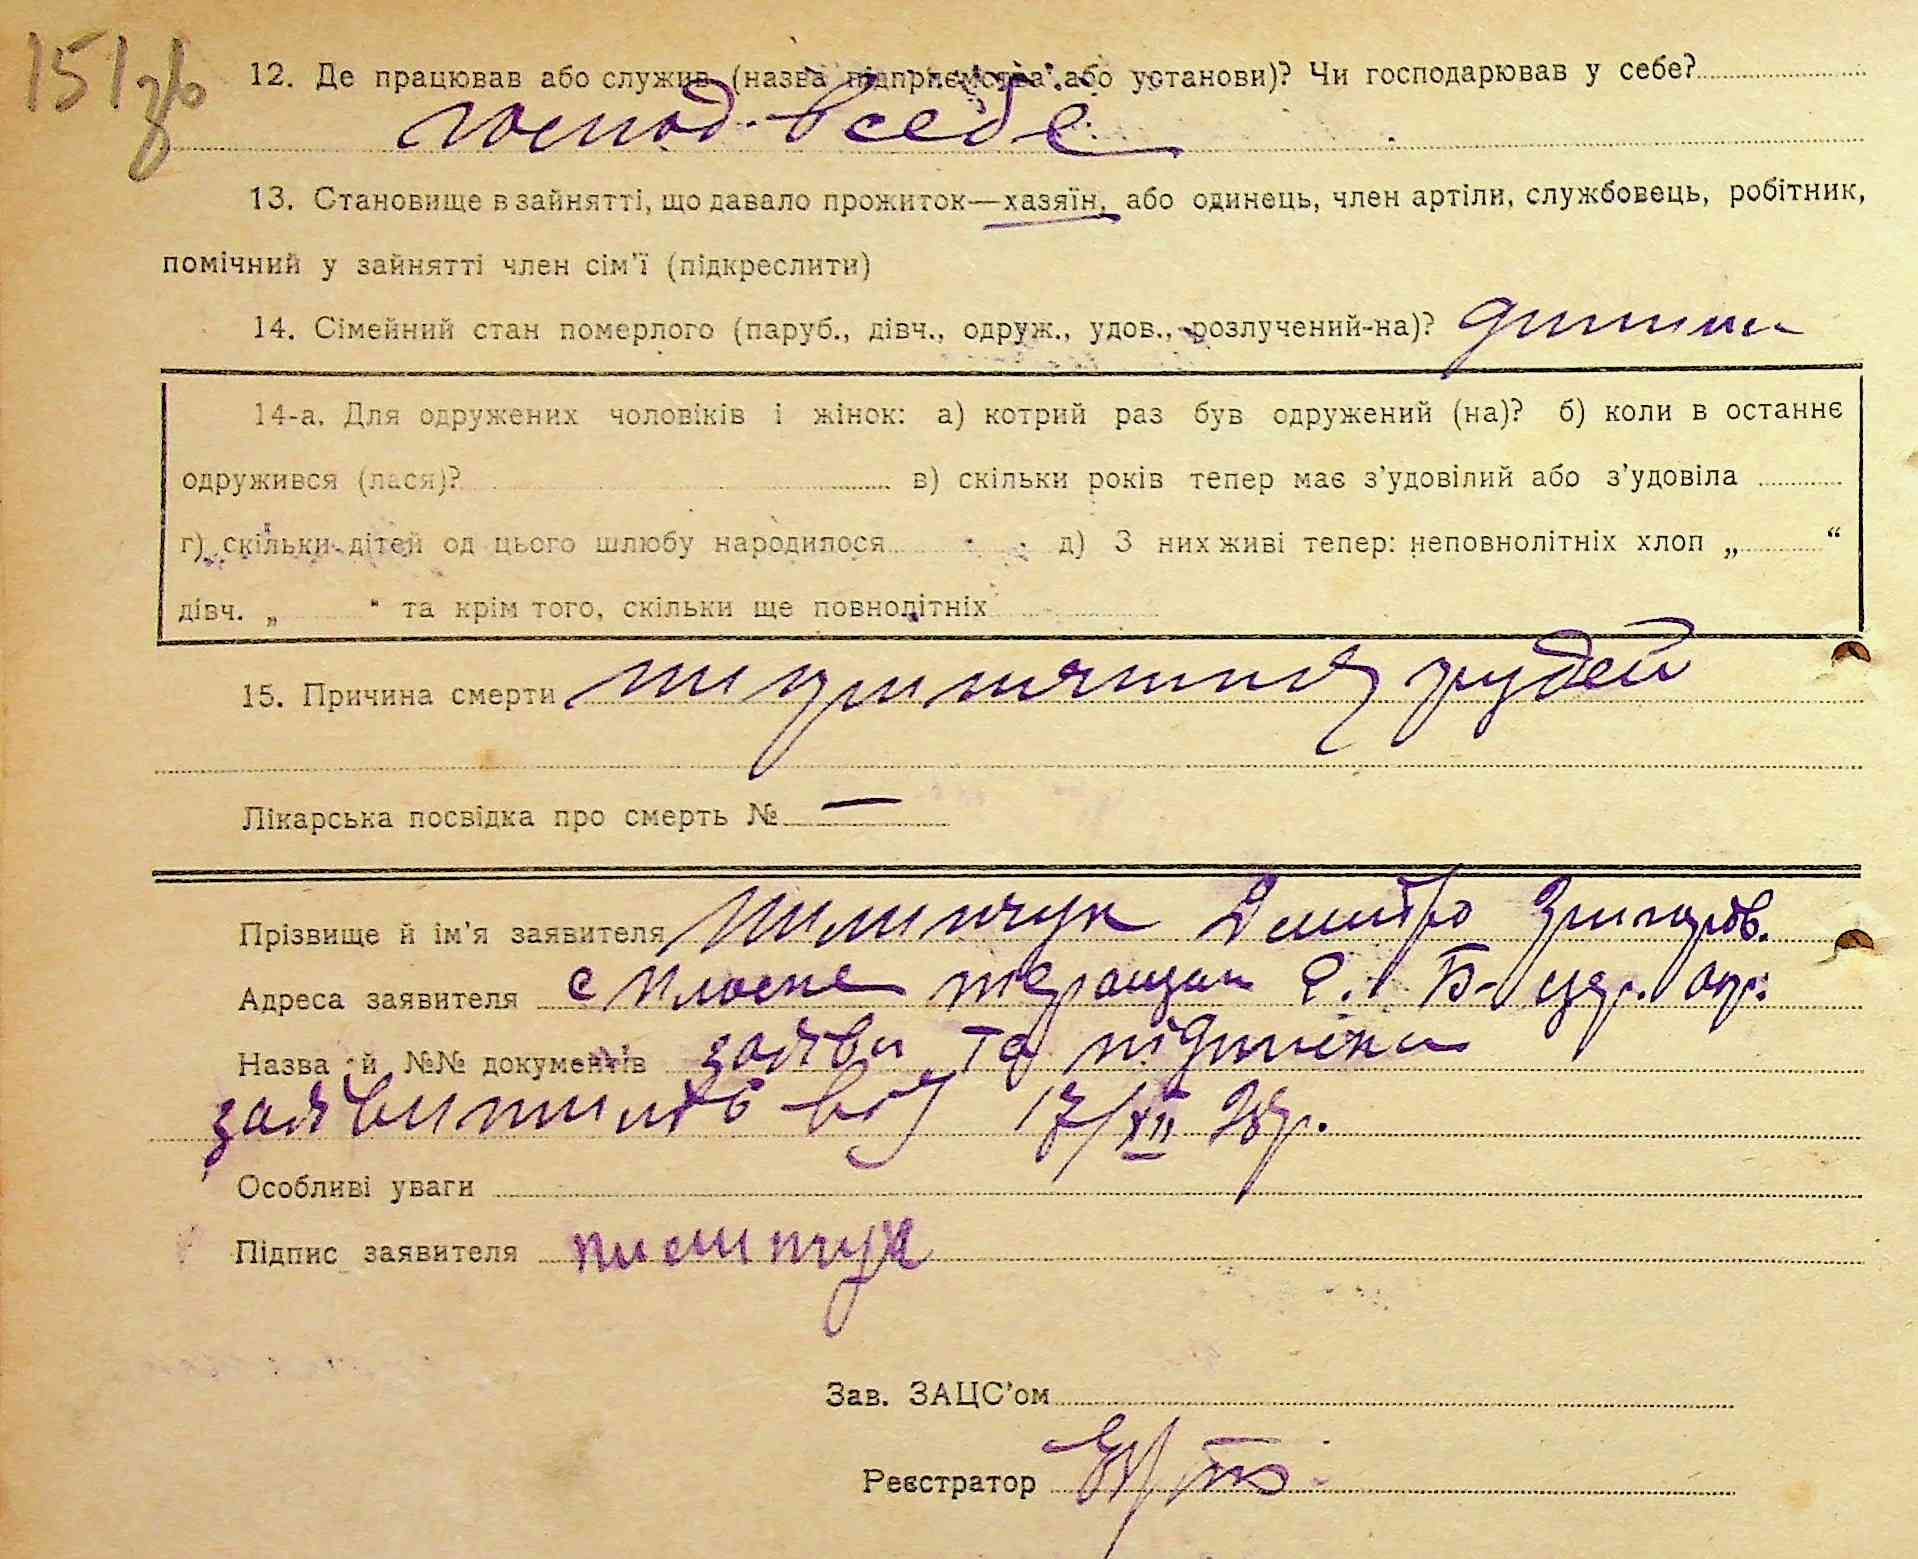 151 зв
12. Де працював або служив (назва підприємства або установи)? Чи господарював у себе?
господ. в себе
13. Становище в зайнятті, що давало прожиток—хазяїн, або одинець, член артіли, службовець, робітник,
помічний у зайнятті член сім'ї (підкреслити)
14. Сімейний стан померлого (паруб., дівч., одруж., удов., розлучений-на)? дитина
14-а. Для одружених чоловіків і жінок: а) котрий раз був одружений (на)? б) коли в останнє
одружився (лася)? в) скільки років тепер має з'удовілий або з'удовіла
г) скільки дітей од цього шлюбу народилося д) З них живі тепер: неповнолітніх хлоп „ “
дівч. „ “ та крім того, скільки ще повнолітніх
15. Причина смерти грудей
Лікарська посвідка про смерть № —
Прізвище й ім'я заявителя Пилипчук Дмитро Григоров.
Адреса заявителя с Плоске Р. Б-Церк. окр.
Назва й №№ документів заява та підписка
заявителів від 17/XII 28р.
Особливі уваги
Підпис заявителя пилипчук
Зав. ЗАЦС'ом
Реєстратор